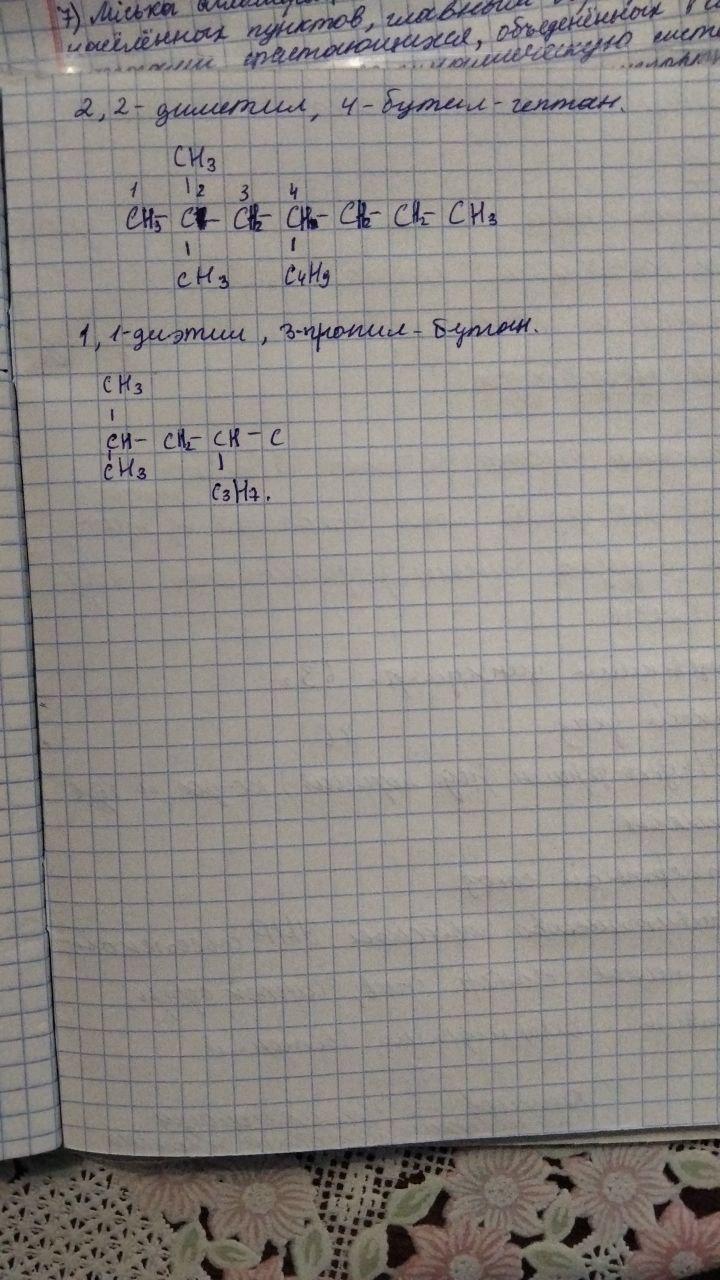 7) Міська
населённых пунктов, главным
срастающихся, объеденённых
2, 2- диметил, 4-бутил-гептан.
CH3
1 2 3 4
CH3- C- CH2- CH- CH2- CH2- CH3
CH3 C4H9
1, 1-диэтил, 3-пропил-бутан.
CH3
CH- CH2- CH- C
CH3
C3H7.